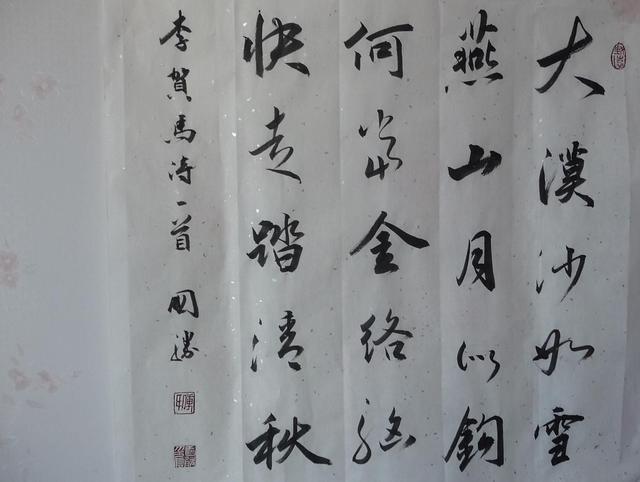 大漠沙如雪
燕山月似鈎
何當金絡腦
快走踏清秋
李賀馬詩一首
國勝